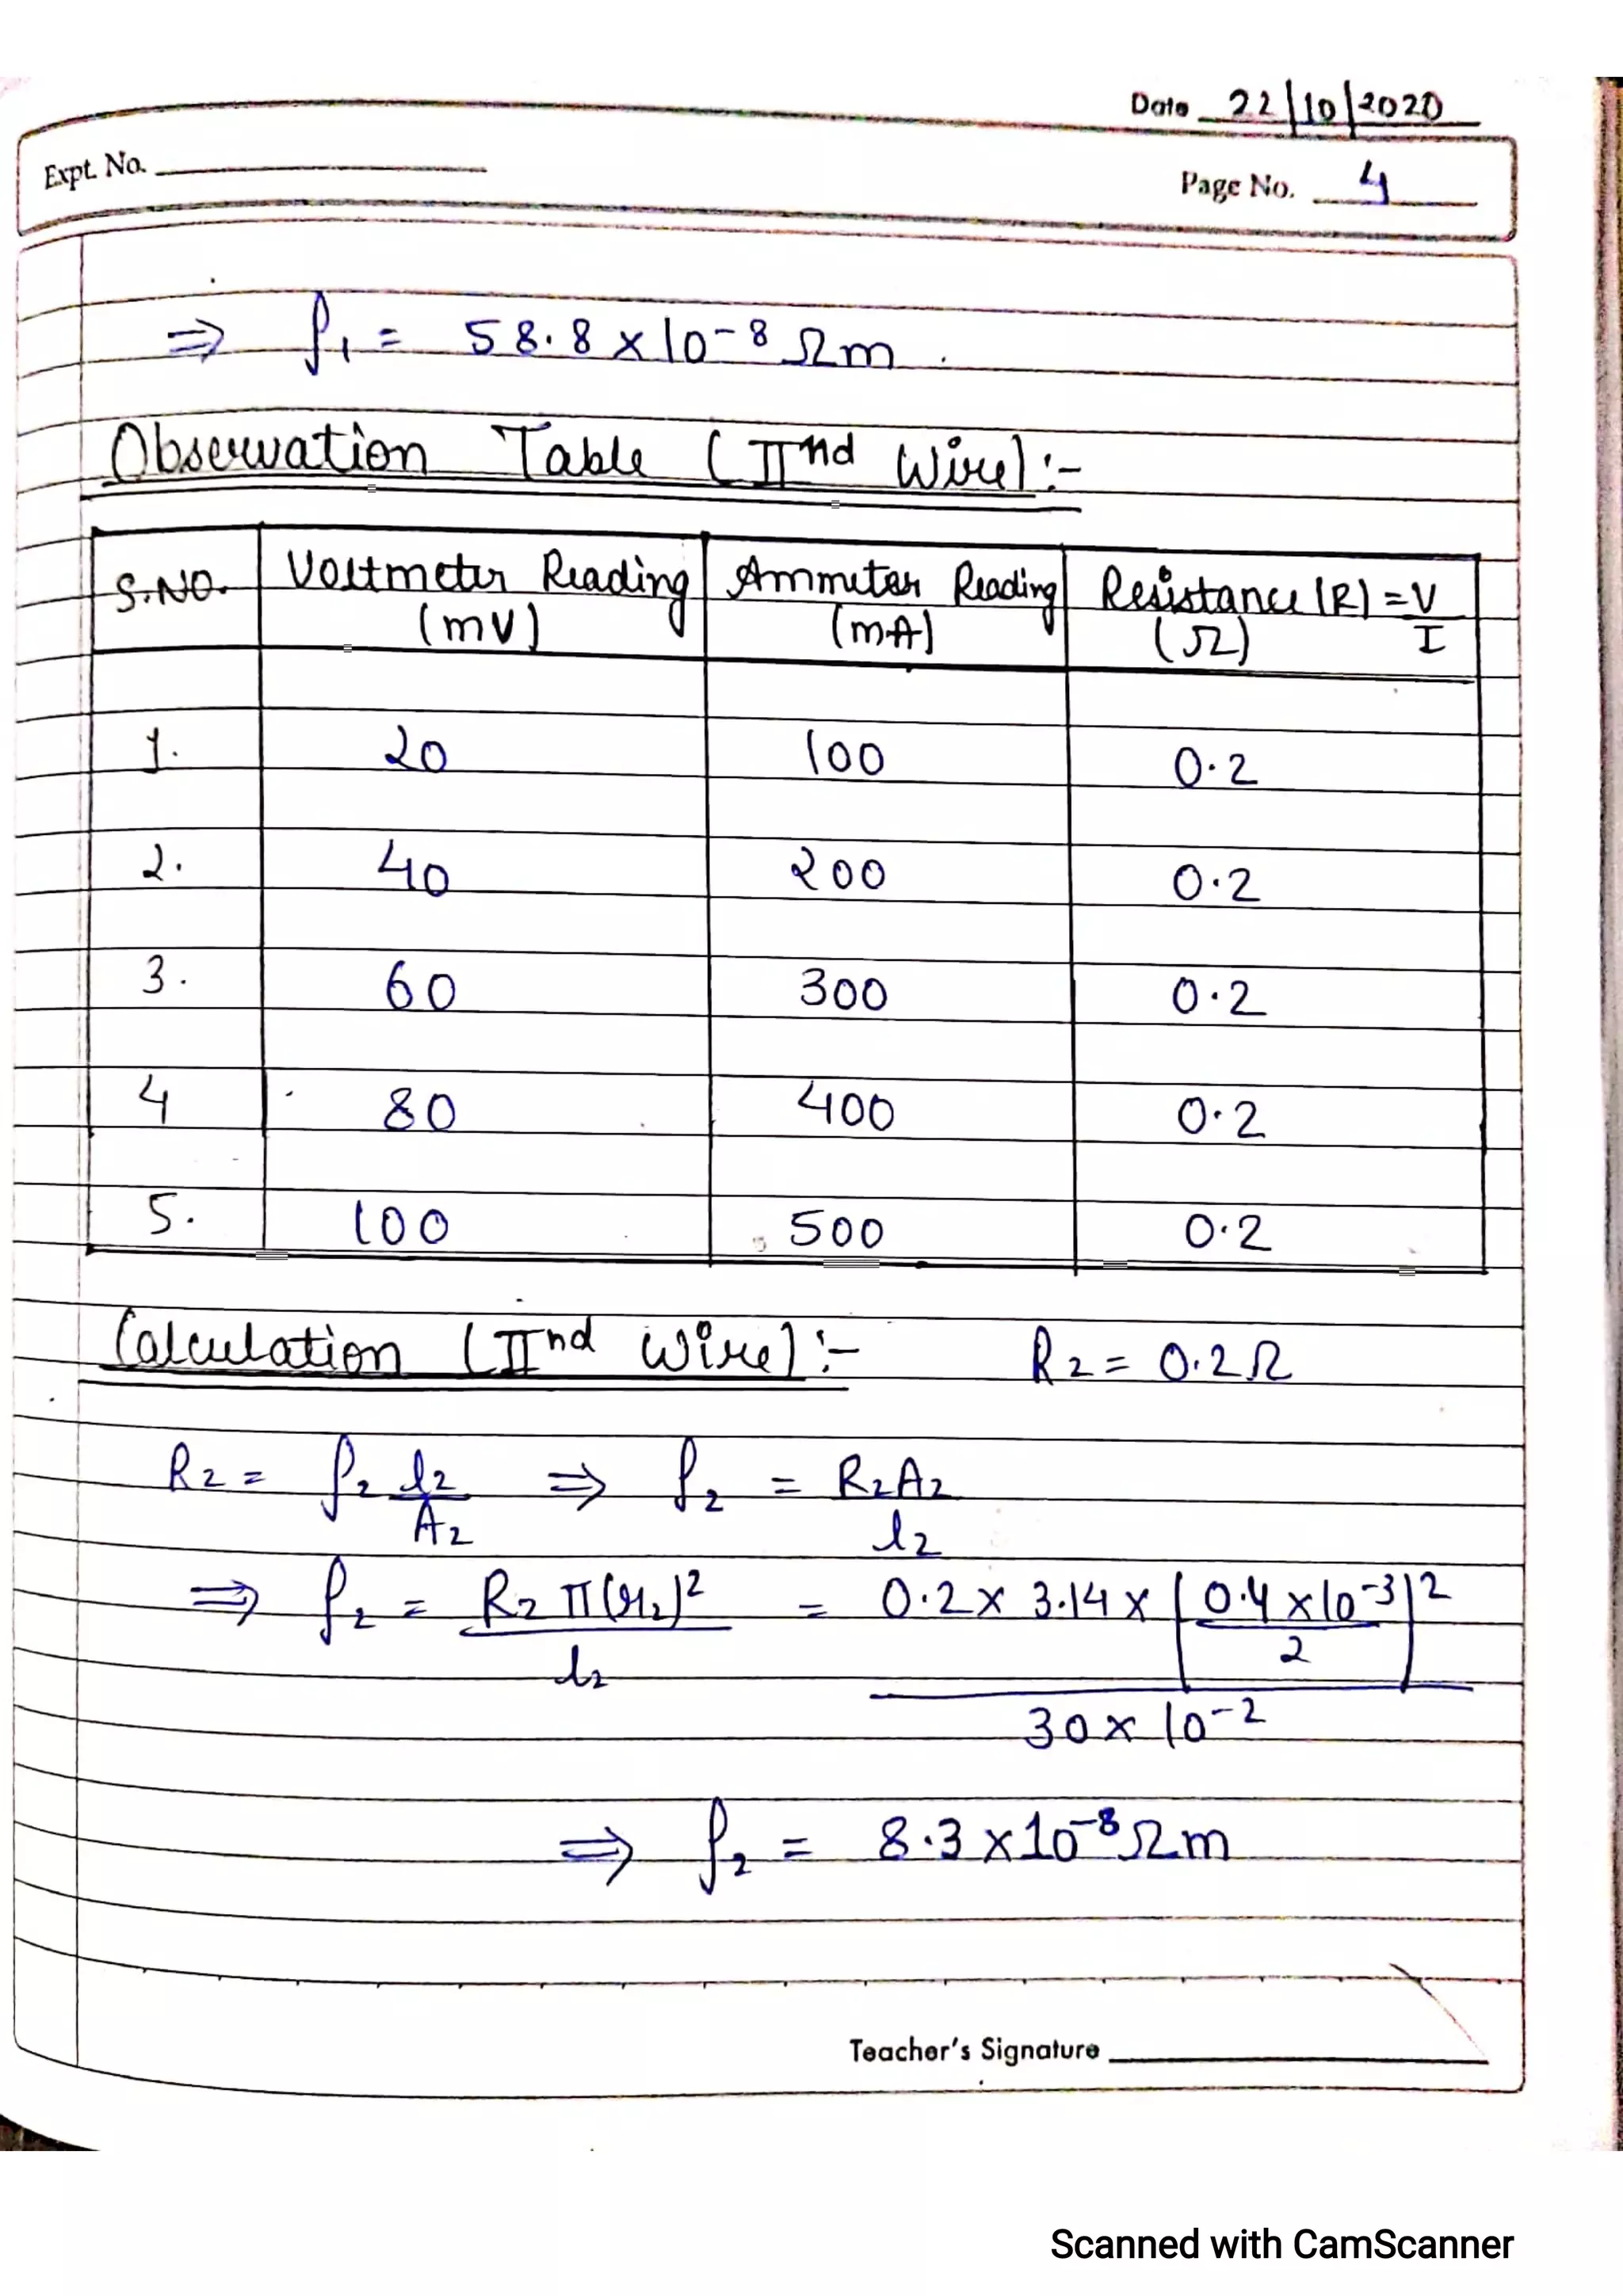 Date 22/10/2020
Expt. No.
Page No. 4
⇒ ρ₁ = 58.8 x 10⁻⁸ Ωm.
Observation Table (IInd Wire):-
S.NO. Voltmeter Reading (mV) Ammeter Reading (mA) Resistance (R) = V/I (Ω)
1. 20 100 0.2
2. 40 200 0.2
3. 60 300 0.2
4 80 400 0.2
5. 100 500 0.2
Calculation (IInd Wire):- R₂ = 0.2Ω
R₂ = ρ₂ l₂/A₂ ⇒ ρ₂ = R₂A₂/l₂
⇒ ρ₂ = R₂ π(r₂)²/l₂ = 0.2 x 3.14 x (0.4 x 10⁻³/2)²/30 x 10⁻²
⇒ ρ₂ = 8.3 x 10⁻⁸ Ωm
Teacher's Signature
Scanned with CamScanner